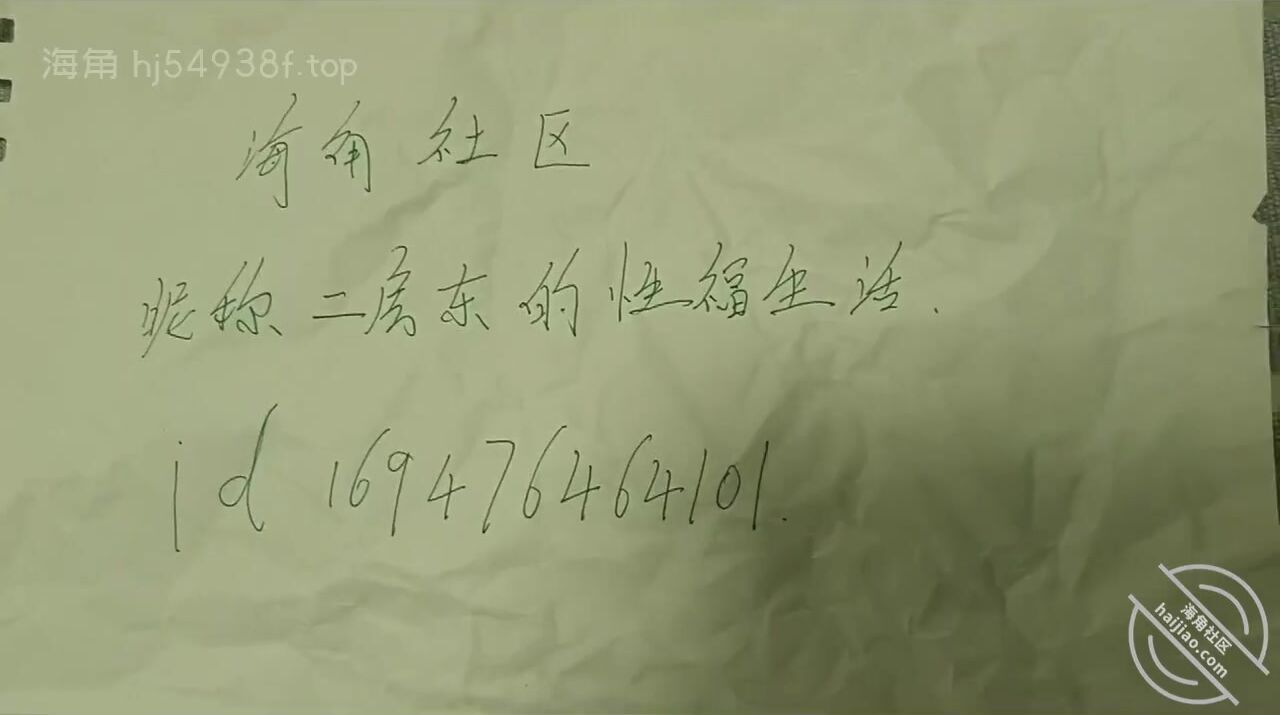 海角 hj54938f.top
海角社区
昵称二房东的性福生活.
id 169476464101.
海角社区
haijiao.com